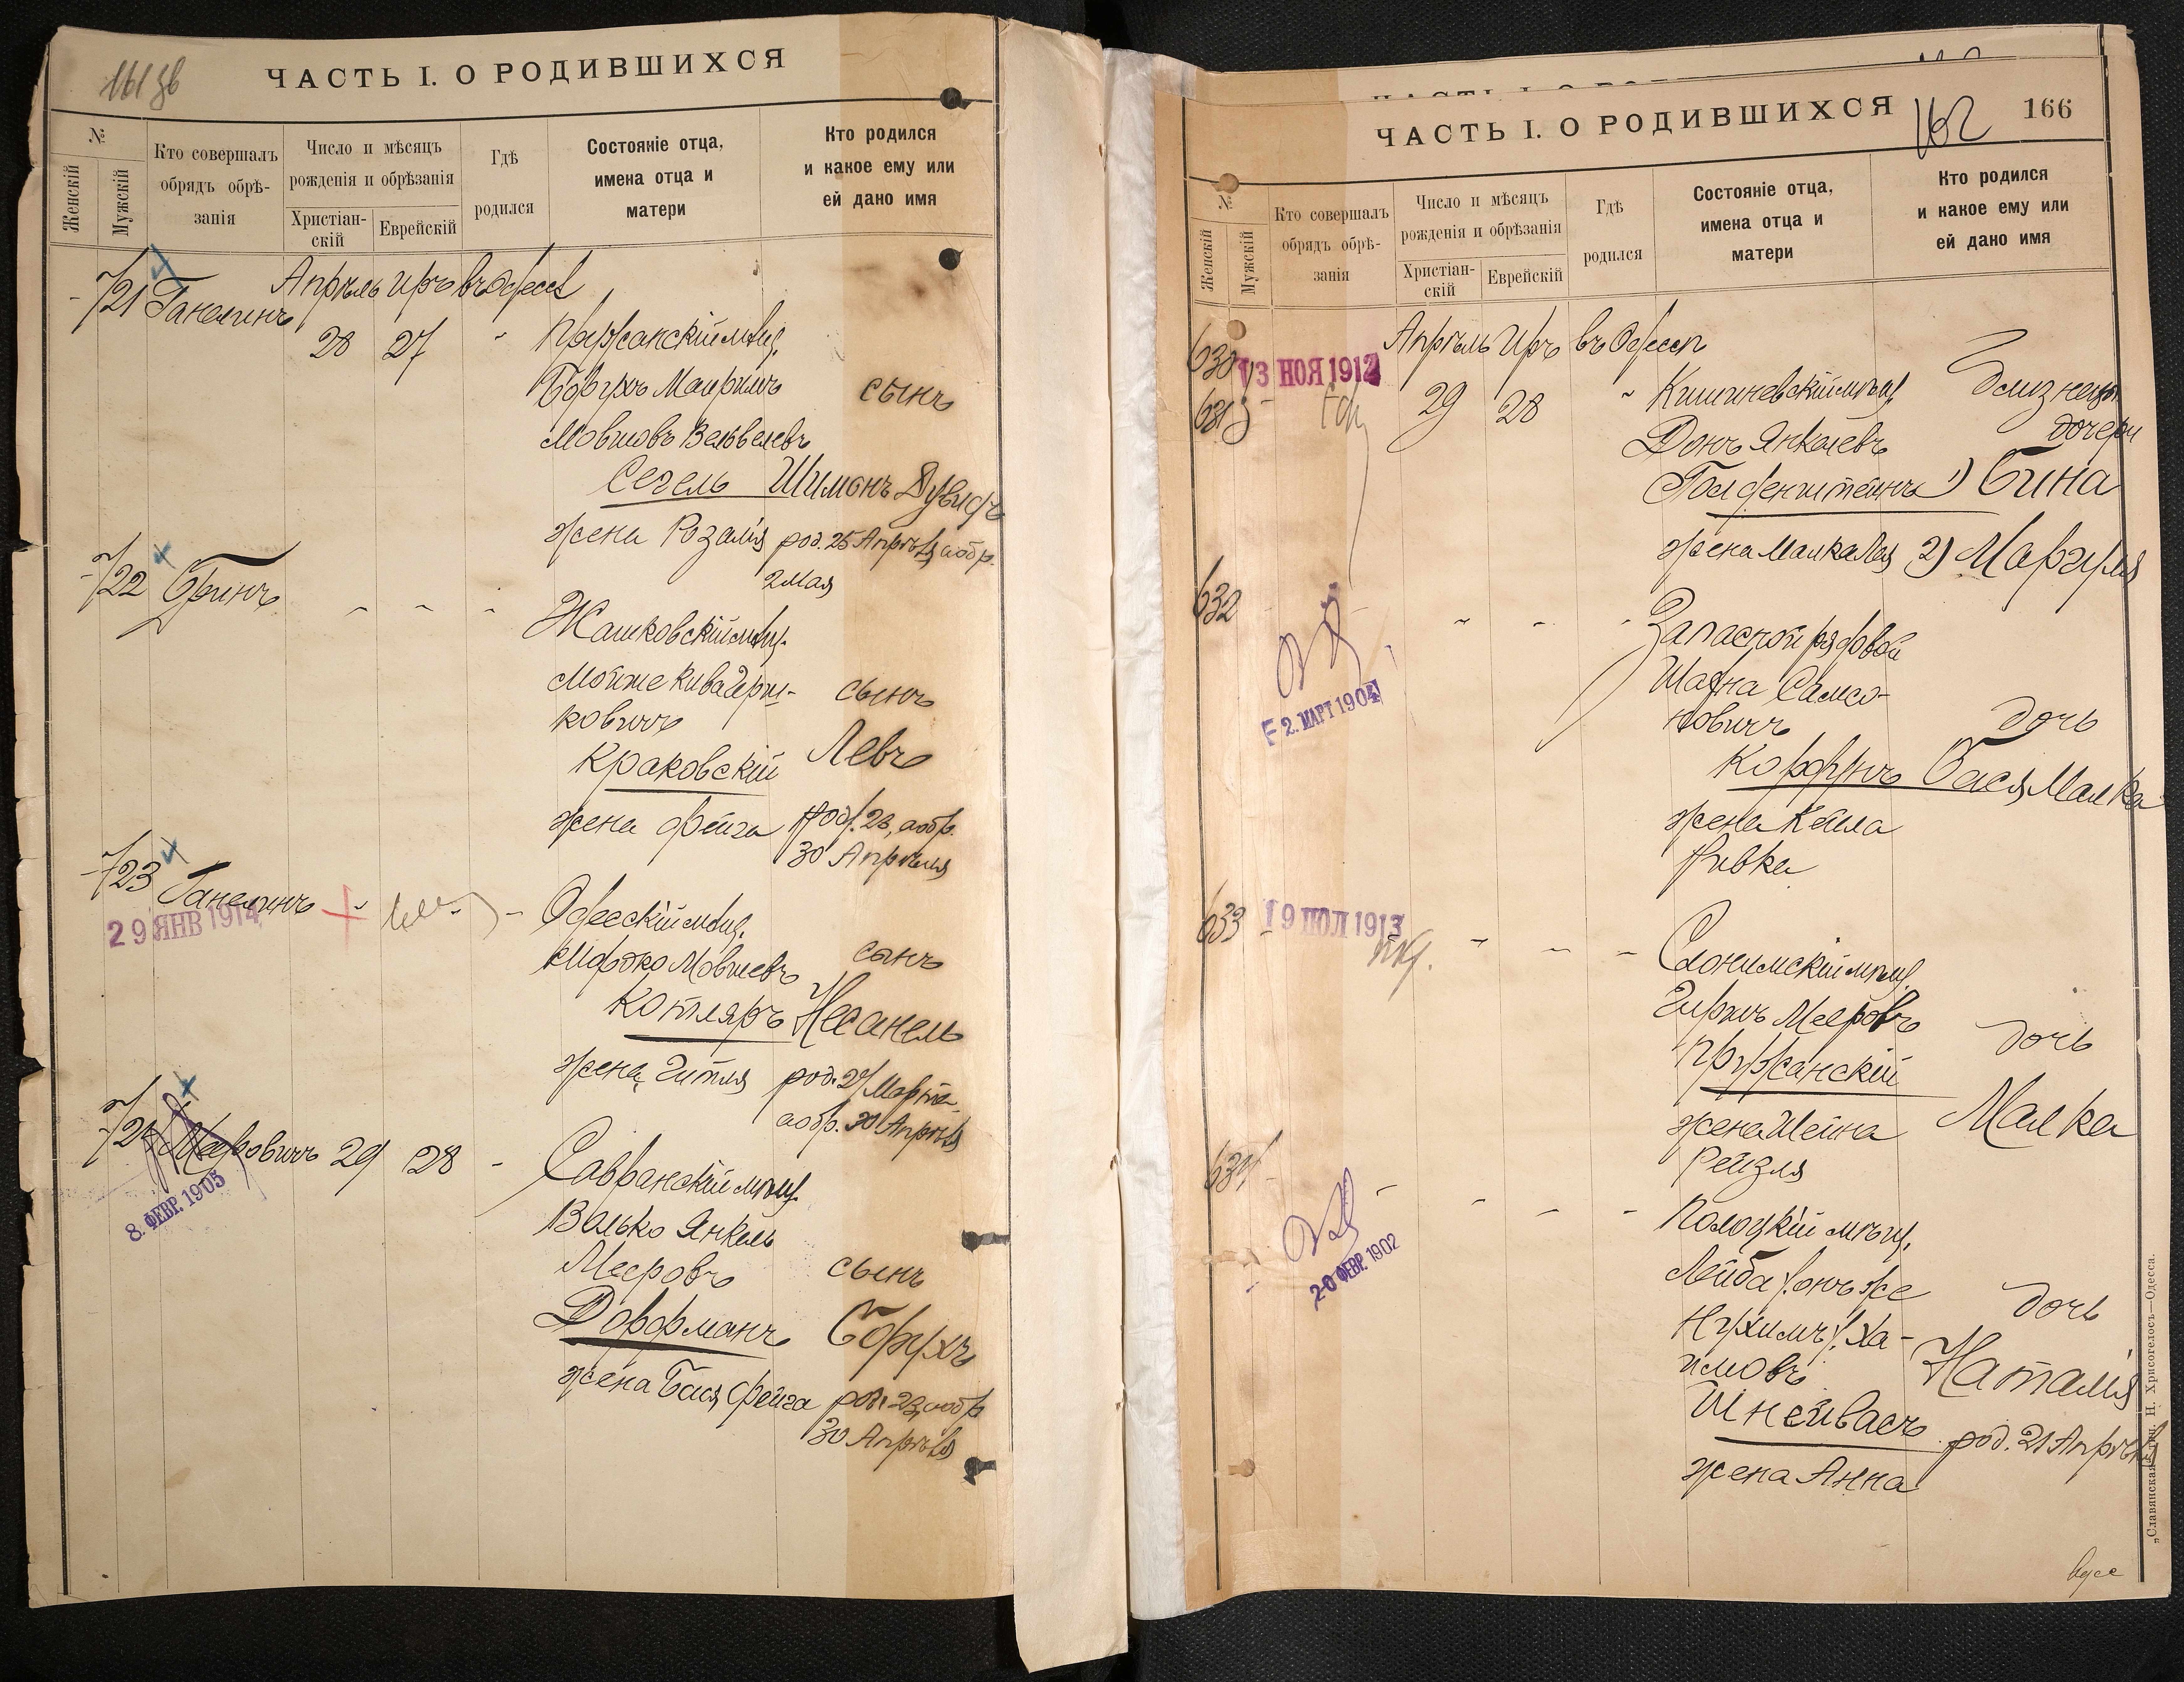 161 об
ЧАСТЬ I. О РОДИВШИХСЯ
№
Женскій
Мужскій
Кто совершалъ
обрядъ обрѣ-
занія
Число и мѣсяцъ
рожденія и обрѣзанія
Христіан-
скій
Еврейскій
Гдѣ
родился
Состояніе отца,
имена отца и
матери
Кто родился
и какое ему или
ей дано имя
Апрѣль Иръ въ Одессѣ
721 Ганелинъ
28 27 - Пружанскій мѣщ.
Борухъ Маркусъ
Мовшовъ Вельвелевъ
сынъ
Сегель Шимонъ Дувидъ
жена Розалія род. 25 Апрѣля, а обр.
2 Мая
722 Фринъ - - -
Жашковскій мѣщ.
Мойше Кива Герш-
ковичъ
сынъ
Краковскій Левъ
жена Фейга род. 23, а обр.
30 Апрѣля
723 Ганелинъ
29 ЯНВ 1914
Одесскій мѣщ.
Мордко Мовшевъ
сынъ
Котляръ Несанель
жена Гитля род. 27 Марта
а обр. 30 Апрѣля
724 Меровичъ 29 28 -
8. ФЕВР. 1905
Савранскій мѣщ.
Волько Янкель
Мееровъ
сынъ
Дорфманъ Борухъ
жена Бася Фейга род. 23, а обр.
30 Апрѣля
ЧАСТЬ I. О РОДИВШИХСЯ
162
166
№
Женскій
Мужскій
Кто совершалъ
обрядъ обрѣ-
занія
Число и мѣсяцъ
рожденія и обрѣзанія
Христіан-
скій
Еврейскій
Гдѣ
родился
Состояніе отца,
имена отца и
матери
Кто родился
и какое ему или
ей дано имя
Апрѣль Иръ въ Одессѣ
630
13 НОЯ 1912
631
29 28 - Кишиневскій мѣщ.
близнецы
дочери
Донъ Янкелевъ
Голденштейнъ 1) Бина
жена Малка Лея 2) Маргуля
632 - - -
2. МАРТ 1904
Запасной рядовой
Шахна Самсо-
новичъ
дочь
Коффунъ Бася Малка
жена Кейла
Ривка
633
19 ИЮЛ 1913
- - -
Слонимскій мѣщ.
Гиршъ Мееровъ
дочь
Пружанскій
Малка
жена Шейна
Рейзля
634 - - - -
20 ФЕВР. 1902
Полоцкій мѣщ.
Лейба (онъ же
Нухимъ) Ха-
имовъ
дочь
Наталія
Шнейвасъ
род. 21 Апрѣля
жена Анна
„Славянская" тип. Н. Хрисогелосъ—Одесса.